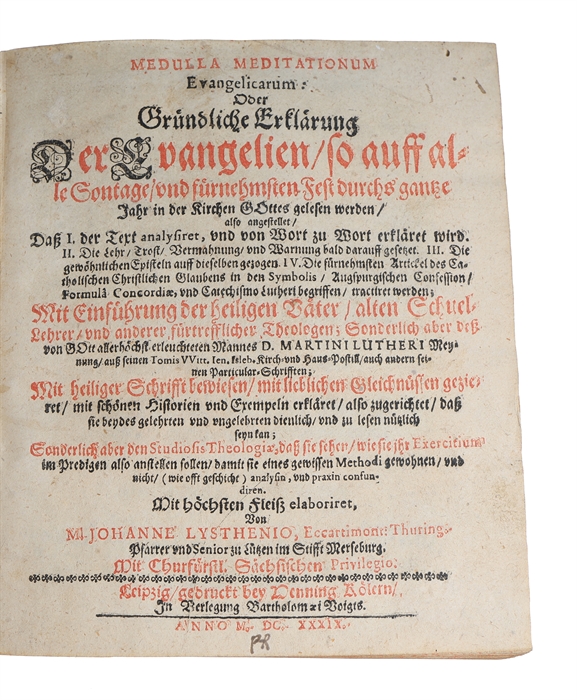 MEDULLA MEDITATIONUM
Evangelicarum:
Oder
Gründliche Erklärung
Der Evangelien/ so auff al-
le Sontage/ vnd fürnehmsten Fest durchs gantze
Jahr in der Kirchen GOttes gelesen werden/
also angestellet/
Daß I. der Text analysiret, vnd von Wort zu Wort erkläret wird.
II. Die Lehr/ Trost/ Vermahnung/ vnd Warnung bald darauff gesetzet. III. Die
gewöhnlichen Episteln auff dieselben gezogen. IV. Die fürnehmsten Artickel des Ca-
tholischen Christlichen Glaubens in den Symbolis/ Augspurgischen Confession/
Formulâ Concordiæ, vnd Catechismo Lutheri begriffen/ tractiret werden;
Mit Einführung der heiligen Väter/ alten Schuel-
Lehrer/ vnd anderer fürtrefflicher Theologen; Sonderlich aber deß
von GOtt allerhöchst-erleuchteten Mannes D. MARTINI LUTHERI Mey-
nung/ auß seinen Tomis VVitt. Jen. Isleb. Kirch- vnd Haus-Postill/ auch andern sei-
nen Particular-Schrifften;
Mit heiliger Schrifft bewiesen/ mit lieblichen Gleichnüssen gezie-
ret/ mit schönen Historien vnd Exempeln erkläret/ also zugerichtet/ daß
sie beydes gelehrten vnd vngelehrten dienlich/ vnd zu lesen nützlich
seyn kan;
Sonderlich aber den Studiosis Theologiæ, daß sie sehen/ wie sie jhr Exercitium
im Predigen also anstellen sollen/ damit sie eines gewissen Methodi gewohnen/ vnd
nicht/ (wie offt geschicht) analysin, vnd praxin confun-
diren.
Mit höchsten Fleiß elaboriret,
Von
M. JOHANNE LYSTHENIO, Eccartimont: Thuring:
Pfarrer vnd Senior zu Lützen im Stifft Merseburg.
Mit Churfürstl. Sächsischen Privilegio.
Leipzig/ gedruckt bey Henning Kölern/
In Verlegung Bartholomæi Voigts.
ANNO M. DC. XXXIX.